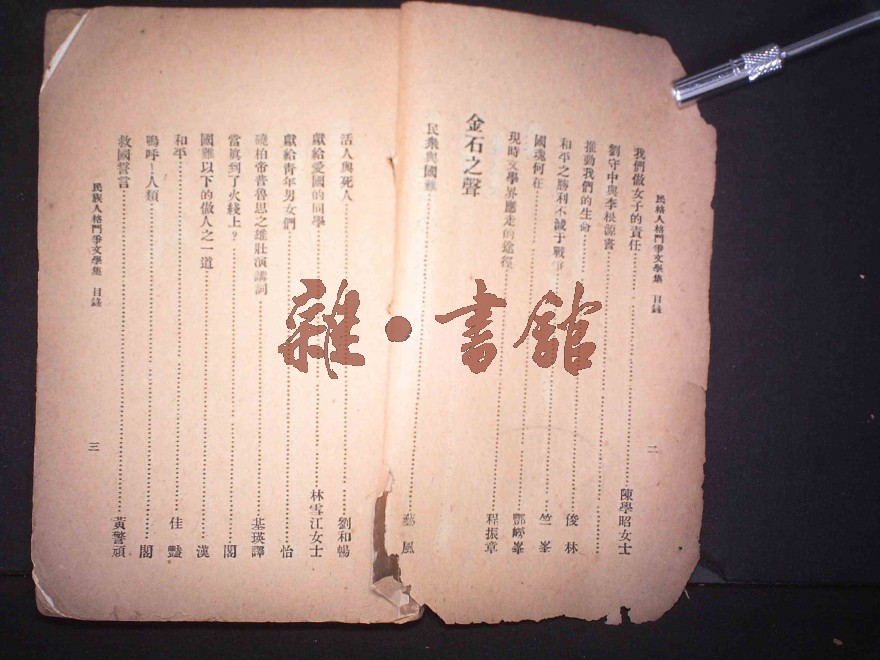 民族人格鬥爭文學集 目錄
二
我們做女子的責任 陳學昭女士
劉守中與李根源書
推動我們的生命 俊林
和平之勝利不減于戰爭 竺峯
國魂何在 峯
現時文學界應走的途徑 程振章
金石之聲
民衆與國難 風
活人與死人 劉和暢
獻給愛國的同學 林雪江女士
獻給青年男女們 怡
磽柏帝普魯思之雄壯演講詞 基瑛譯
當眞到了火綫上？ 閣
國難以下的做人之一道 漢
和平 佳豔
嗚呼！人類 閣
救國誓言 黃警頑
民族人格鬥爭文學集 目錄
三
雜•書館